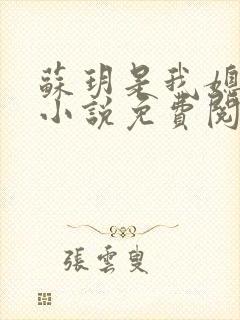 蘇玥是我媽
小說免費閱
張雲叟